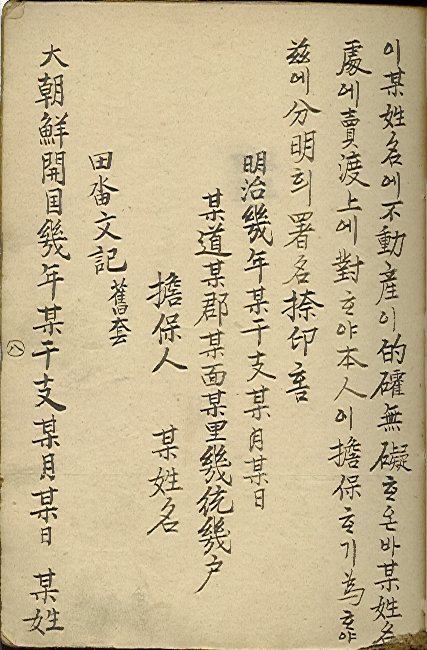 이某姓名에不動産이的礭無礙ᄒᆞ온바某姓名
處에賣渡上에對ᄒᆞ야本人이擔保ᄒᆞ기爲ᄒᆞ야
玆에分明히署名捺印홈
明治幾年某干支某月某日
某道某郡某面某里幾統幾戶
擔保人 某姓名
田畓文記 舊套
大朝鮮開国幾年某干支某月某日 某姓
八